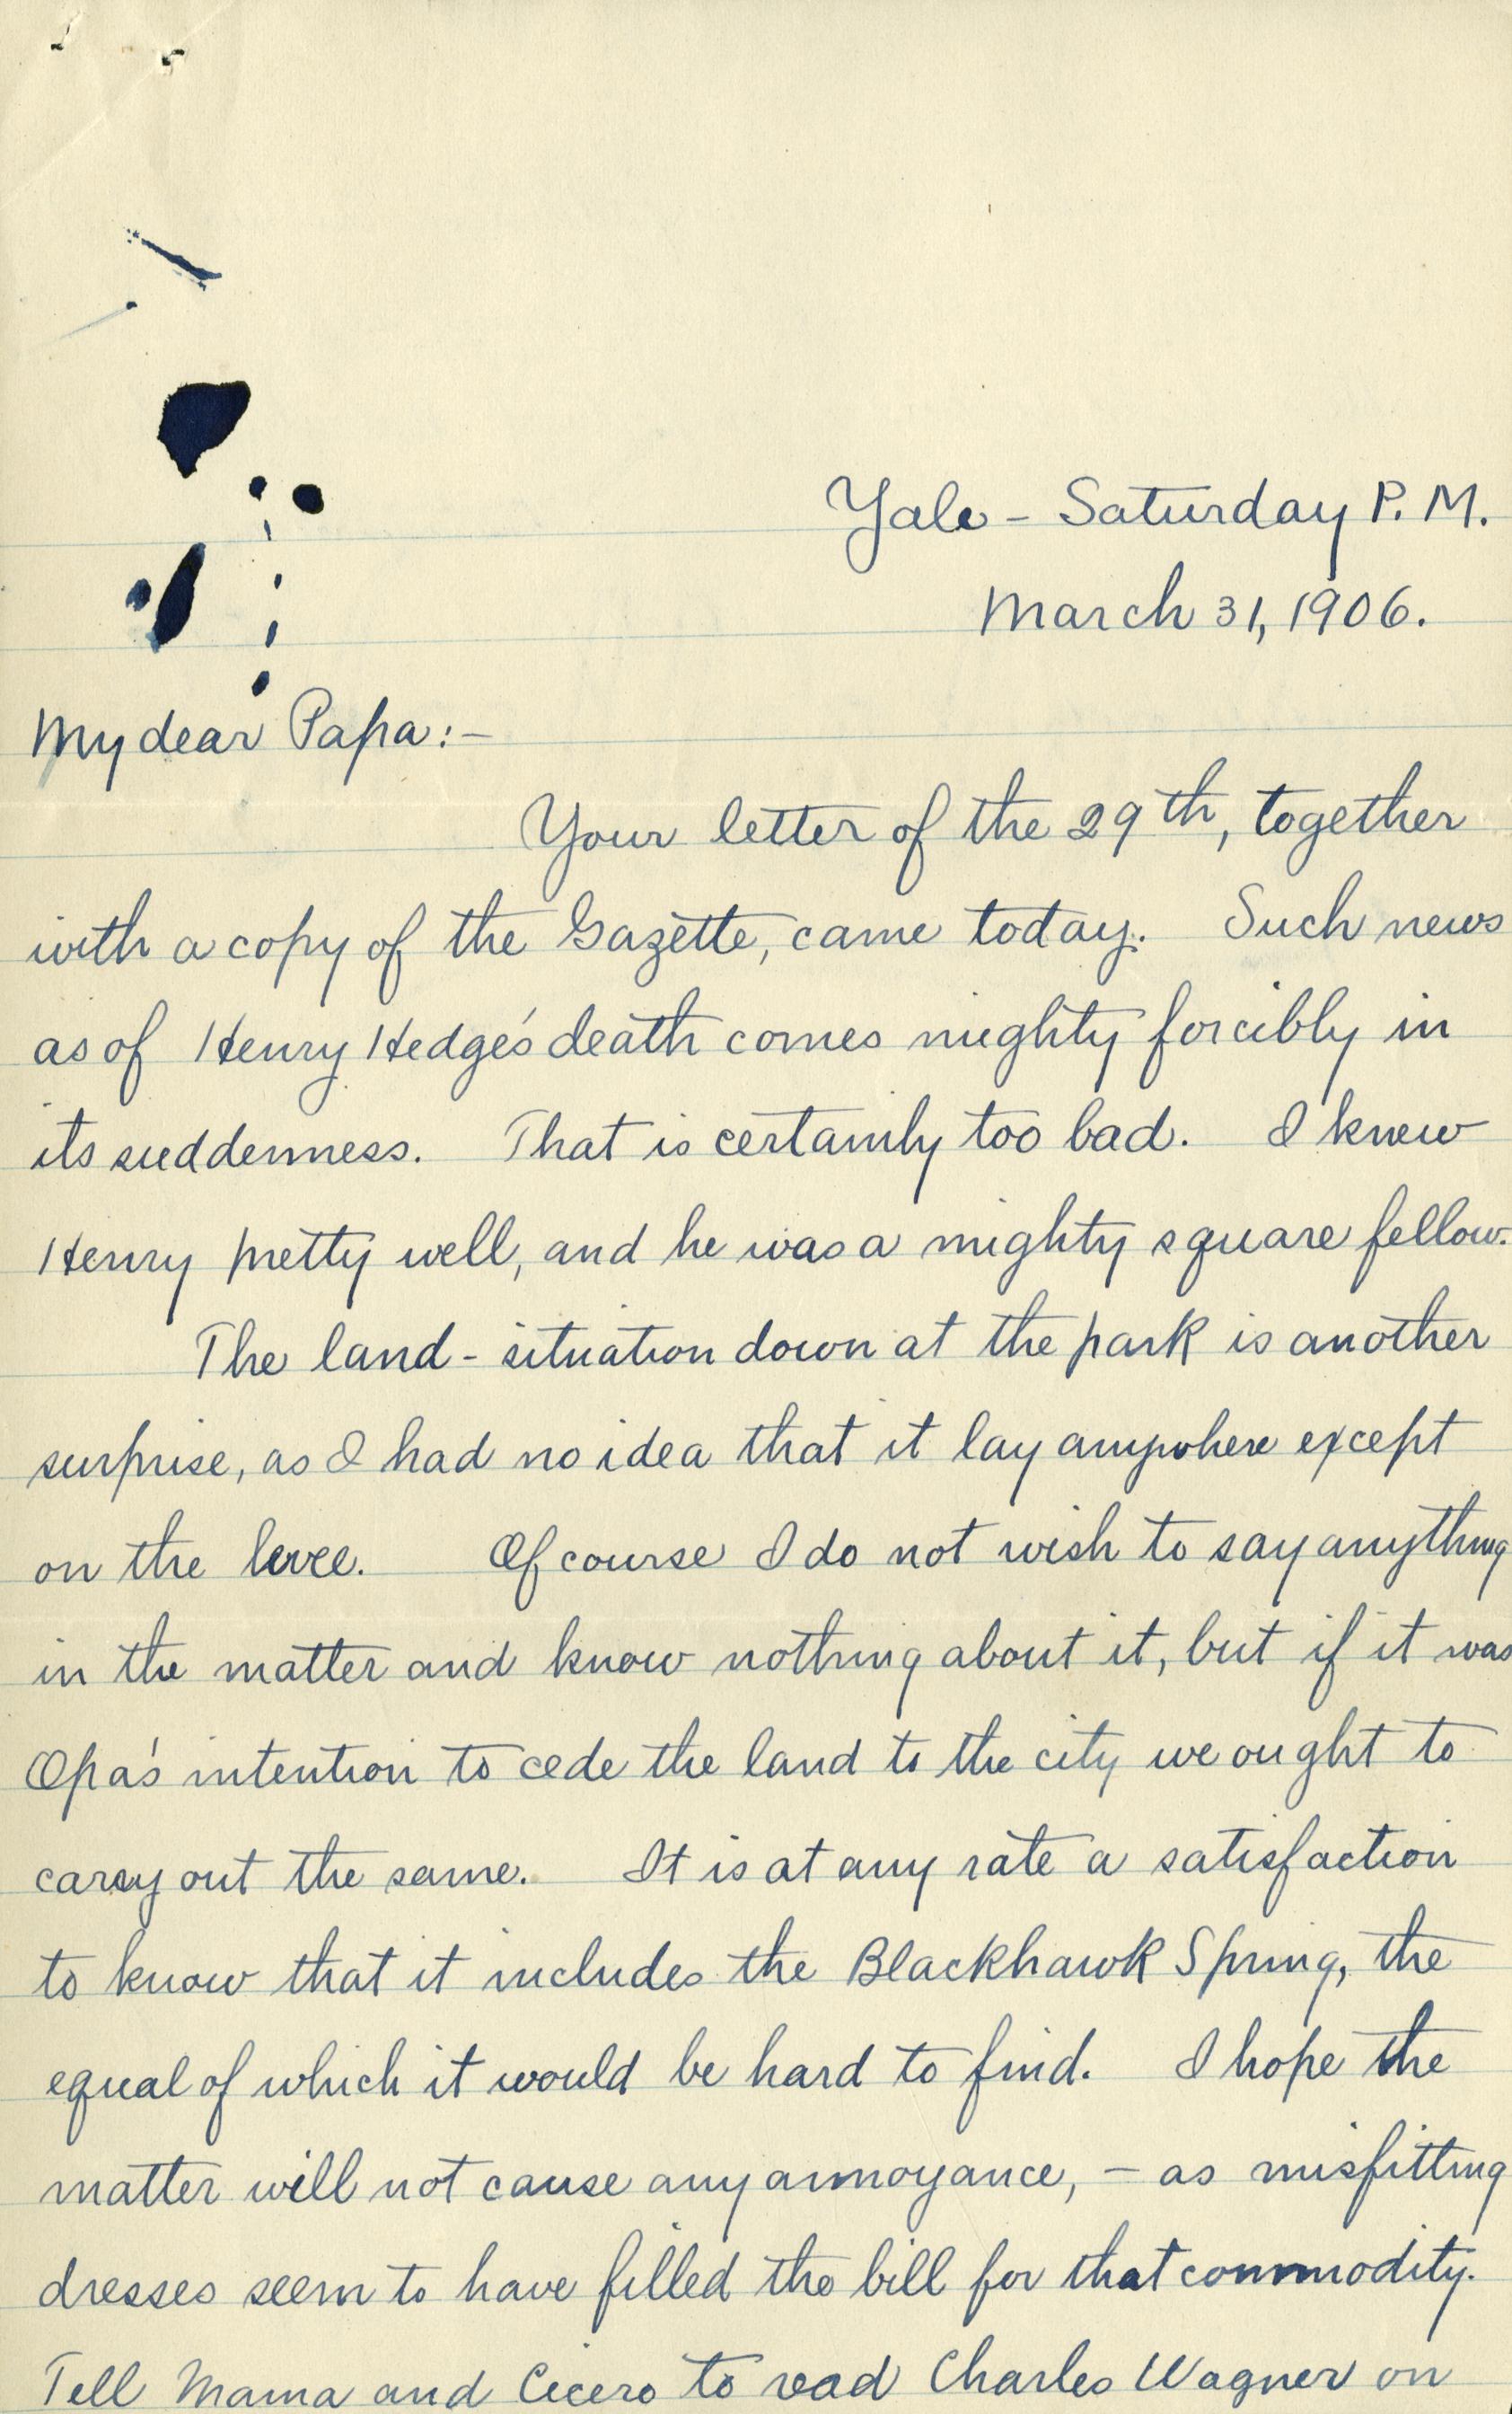 Yale - Saturday P. M.
March 31, 1906.
My dear Papa:-
Your letter of the 29th, together
with a copy of the Gazette, came today. Such news
as of Henry Hedge's death comes mighty forcibly in
its suddenness. That is certainly too bad. I knew
Henry pretty well, and he was a mighty square fellow.
The land-situation down at the park is another
surprise, as I had no idea that it lay anywhere except
on the levee. Of course I do not wish to say anything
in the matter and know nothing about it, but if it was
Opa's intention to cede the land to the city we ought to
carry out the same. It is at any rate a satisfaction
to know that it includes the Blackhawk Spring, the
equal of which it would be hard to find. I hope the
matter will not cause any annoyance, - as misfitting
dresses seem to have filled the bill for that commodity.
Tell Mama and Cicero to read Charles Wagner on